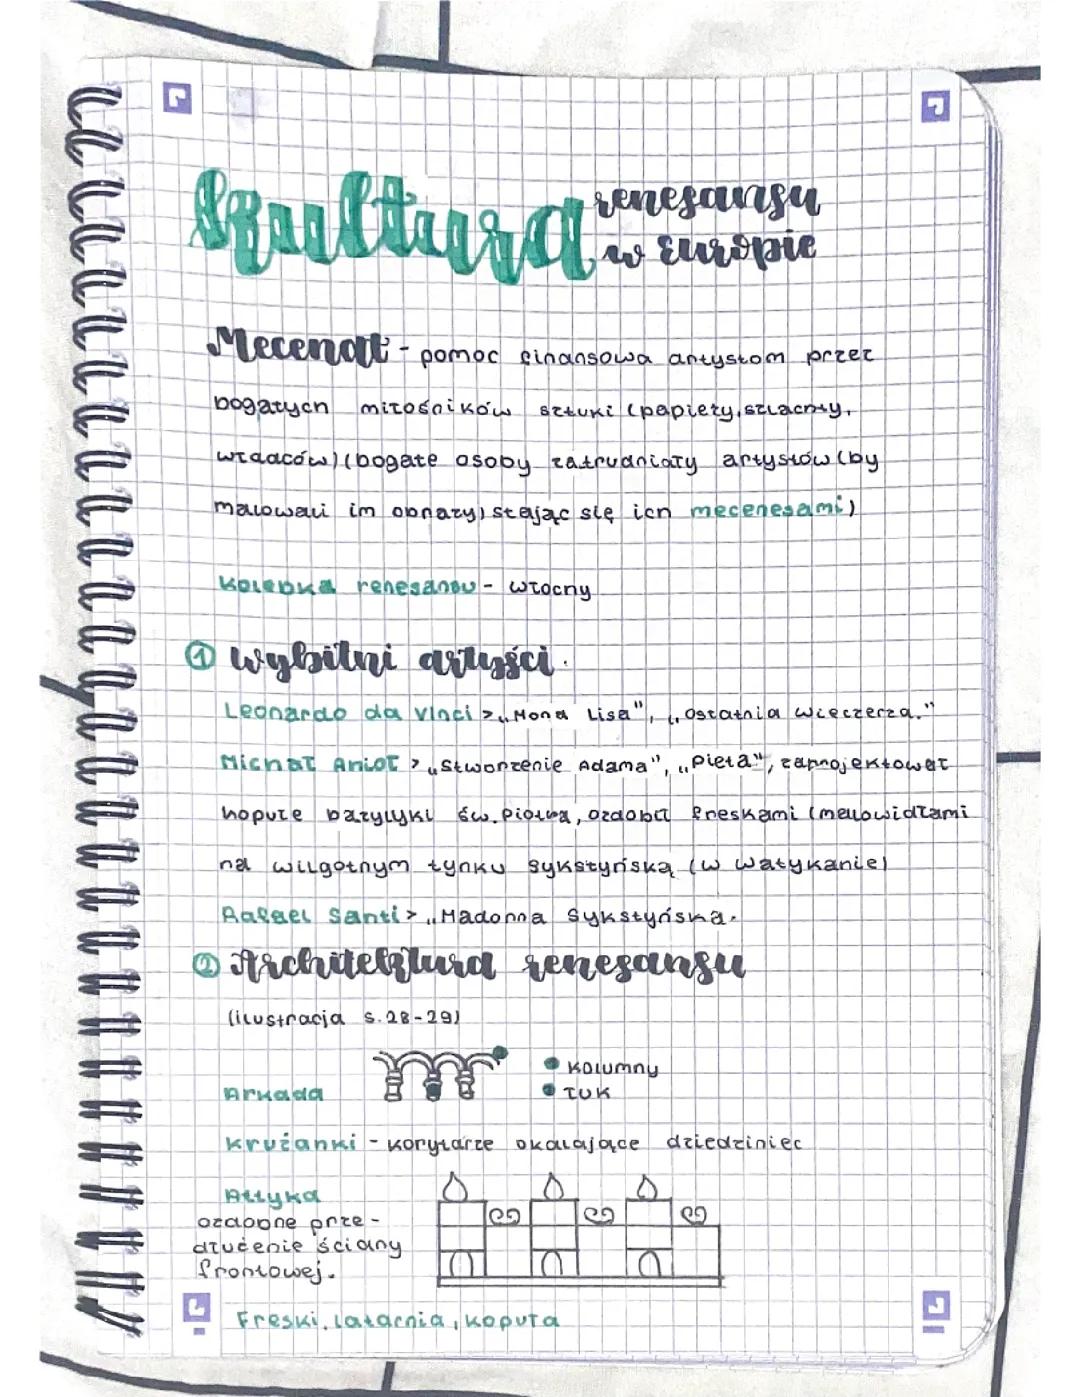 kultura renesansu
w Europie
Mecenat - pomoc finansowa artystom przez
bogatych miłośników sztuki (papieży, szlachty,
władców) (bogate osoby zatrudniały artystów (by
malowali im obrazy) stając się ich mecenesami)
Kolebka renesansu - włochy
① wybitni artyści.
Leonardo da Vinci > „Mona Lisa", „Ostatnia wieczerza."
Michał Anioł > „Stworzenie Adama", „Pieta", zaprojektował
kopułe bazyлyki św. Piotra, ozdobił freskami (malowidłami
na wilgotnym tynku Sykstyńską (w watykanie)
Rafael Santi > „Madonna Sykstyńska.
② Architektura renesansu
(ilustracja s. 28-29)
Arkada
kolumny
łuk
Krużanki - korytarze okalające dziedziniec
Attyka
ozdobne prze-
dłużenie ściany
frontowej.
Freski, latarnia, kopuła